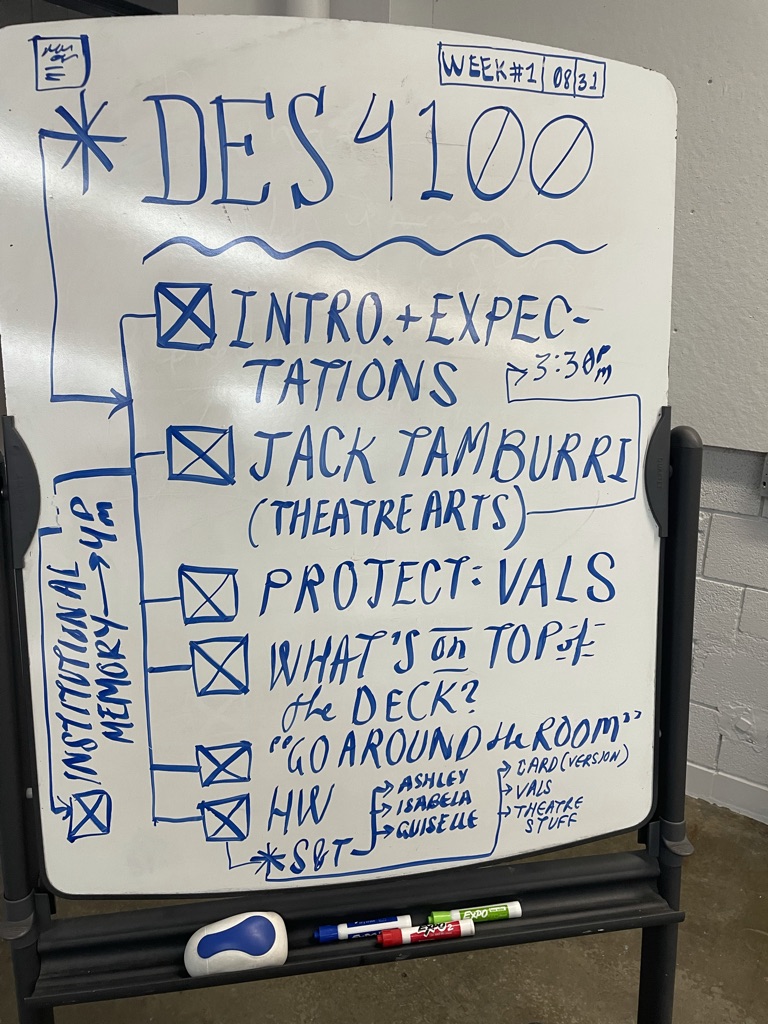 WEEK#1 08 31
* DES 4100
INTRO.+EXPEC-
TATIONS
3:30PM
JACK TAMBURRI
(THEATRE ARTS)
PROJECT: VALS
WHAT'S on TOP of
the DECK?
"GO AROUND the ROOM"
HW
*S&T
ASHLEY
ISABELA
GUISELLE
CARD (VERSION)
VALS
THEATRE
STUFF
INSTITUTIONAL
MEMORY → 4PM
EXPO
EXPO